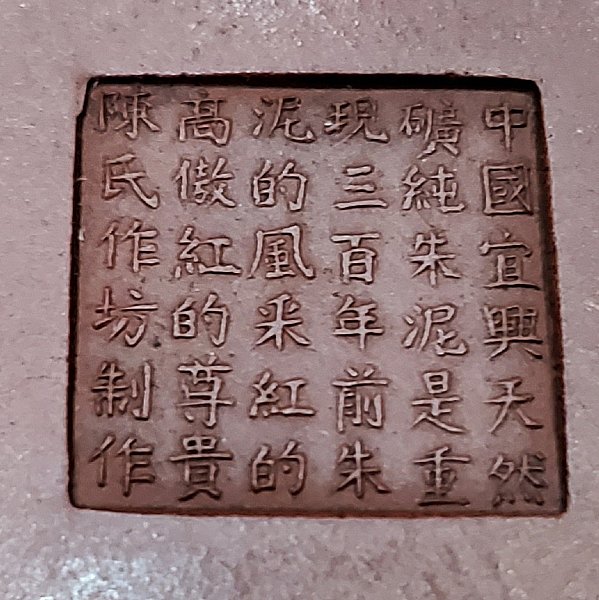 中國宜興天然
礦純朱泥是重
現三百年前朱
泥的風采紅的
高傲紅的尊貴
陳氏作坊制作